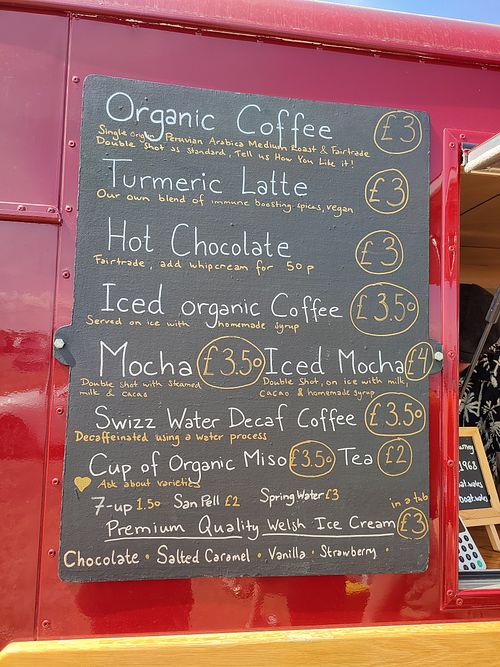 Organic Coffee £3
Single Origin Peruvian Arabica Medium Roast & Fairtrade
Double Shot as standard, Tell us How You Like it!
Turmeric Latte £3
Our own blend of immune boosting spices, vegan
Hot Chocolate £3
Fairtrade, add whipcream for 50p
Iced organic Coffee £3.50
Served on ice with homemade syrup
Mocha £3.50 Iced Mocha £4
Double Shot with steamed milk & cacao
Double Shot, on ice with milk, cacao & homemade syrup
Swizz Water Decaf Coffee £3.50
Decaffeinated using a water process
Cup of Organic Miso £3.50 Tea £2
Ask about varieties
7-up 1.50 San Pell £2 Spring Water £3
in a tub
Premium Quality Welsh Ice Cream £3
Chocolate • Salted Caramel • Vanilla • Strawberry •
1968